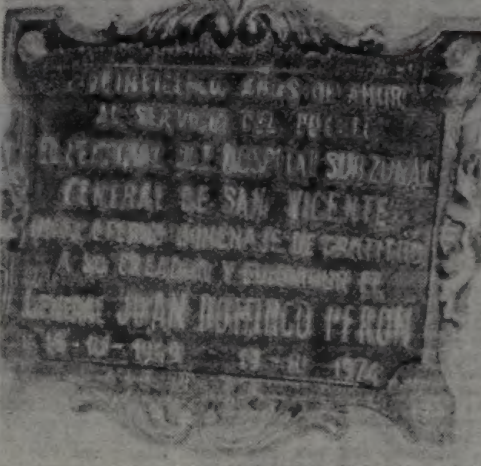 VEINTICINCO AÑOS DE AMOR
AL SERVICIO DEL PUEBLO
EL PERSONAL DEL HOSPITAL SUBZONAL
CENTRAL DE SAN VICENTE
HOMENAJE DE GRATITUD
A SU CREADOR Y
GENERAL JUAN DOMINGO PERON
1949 1974